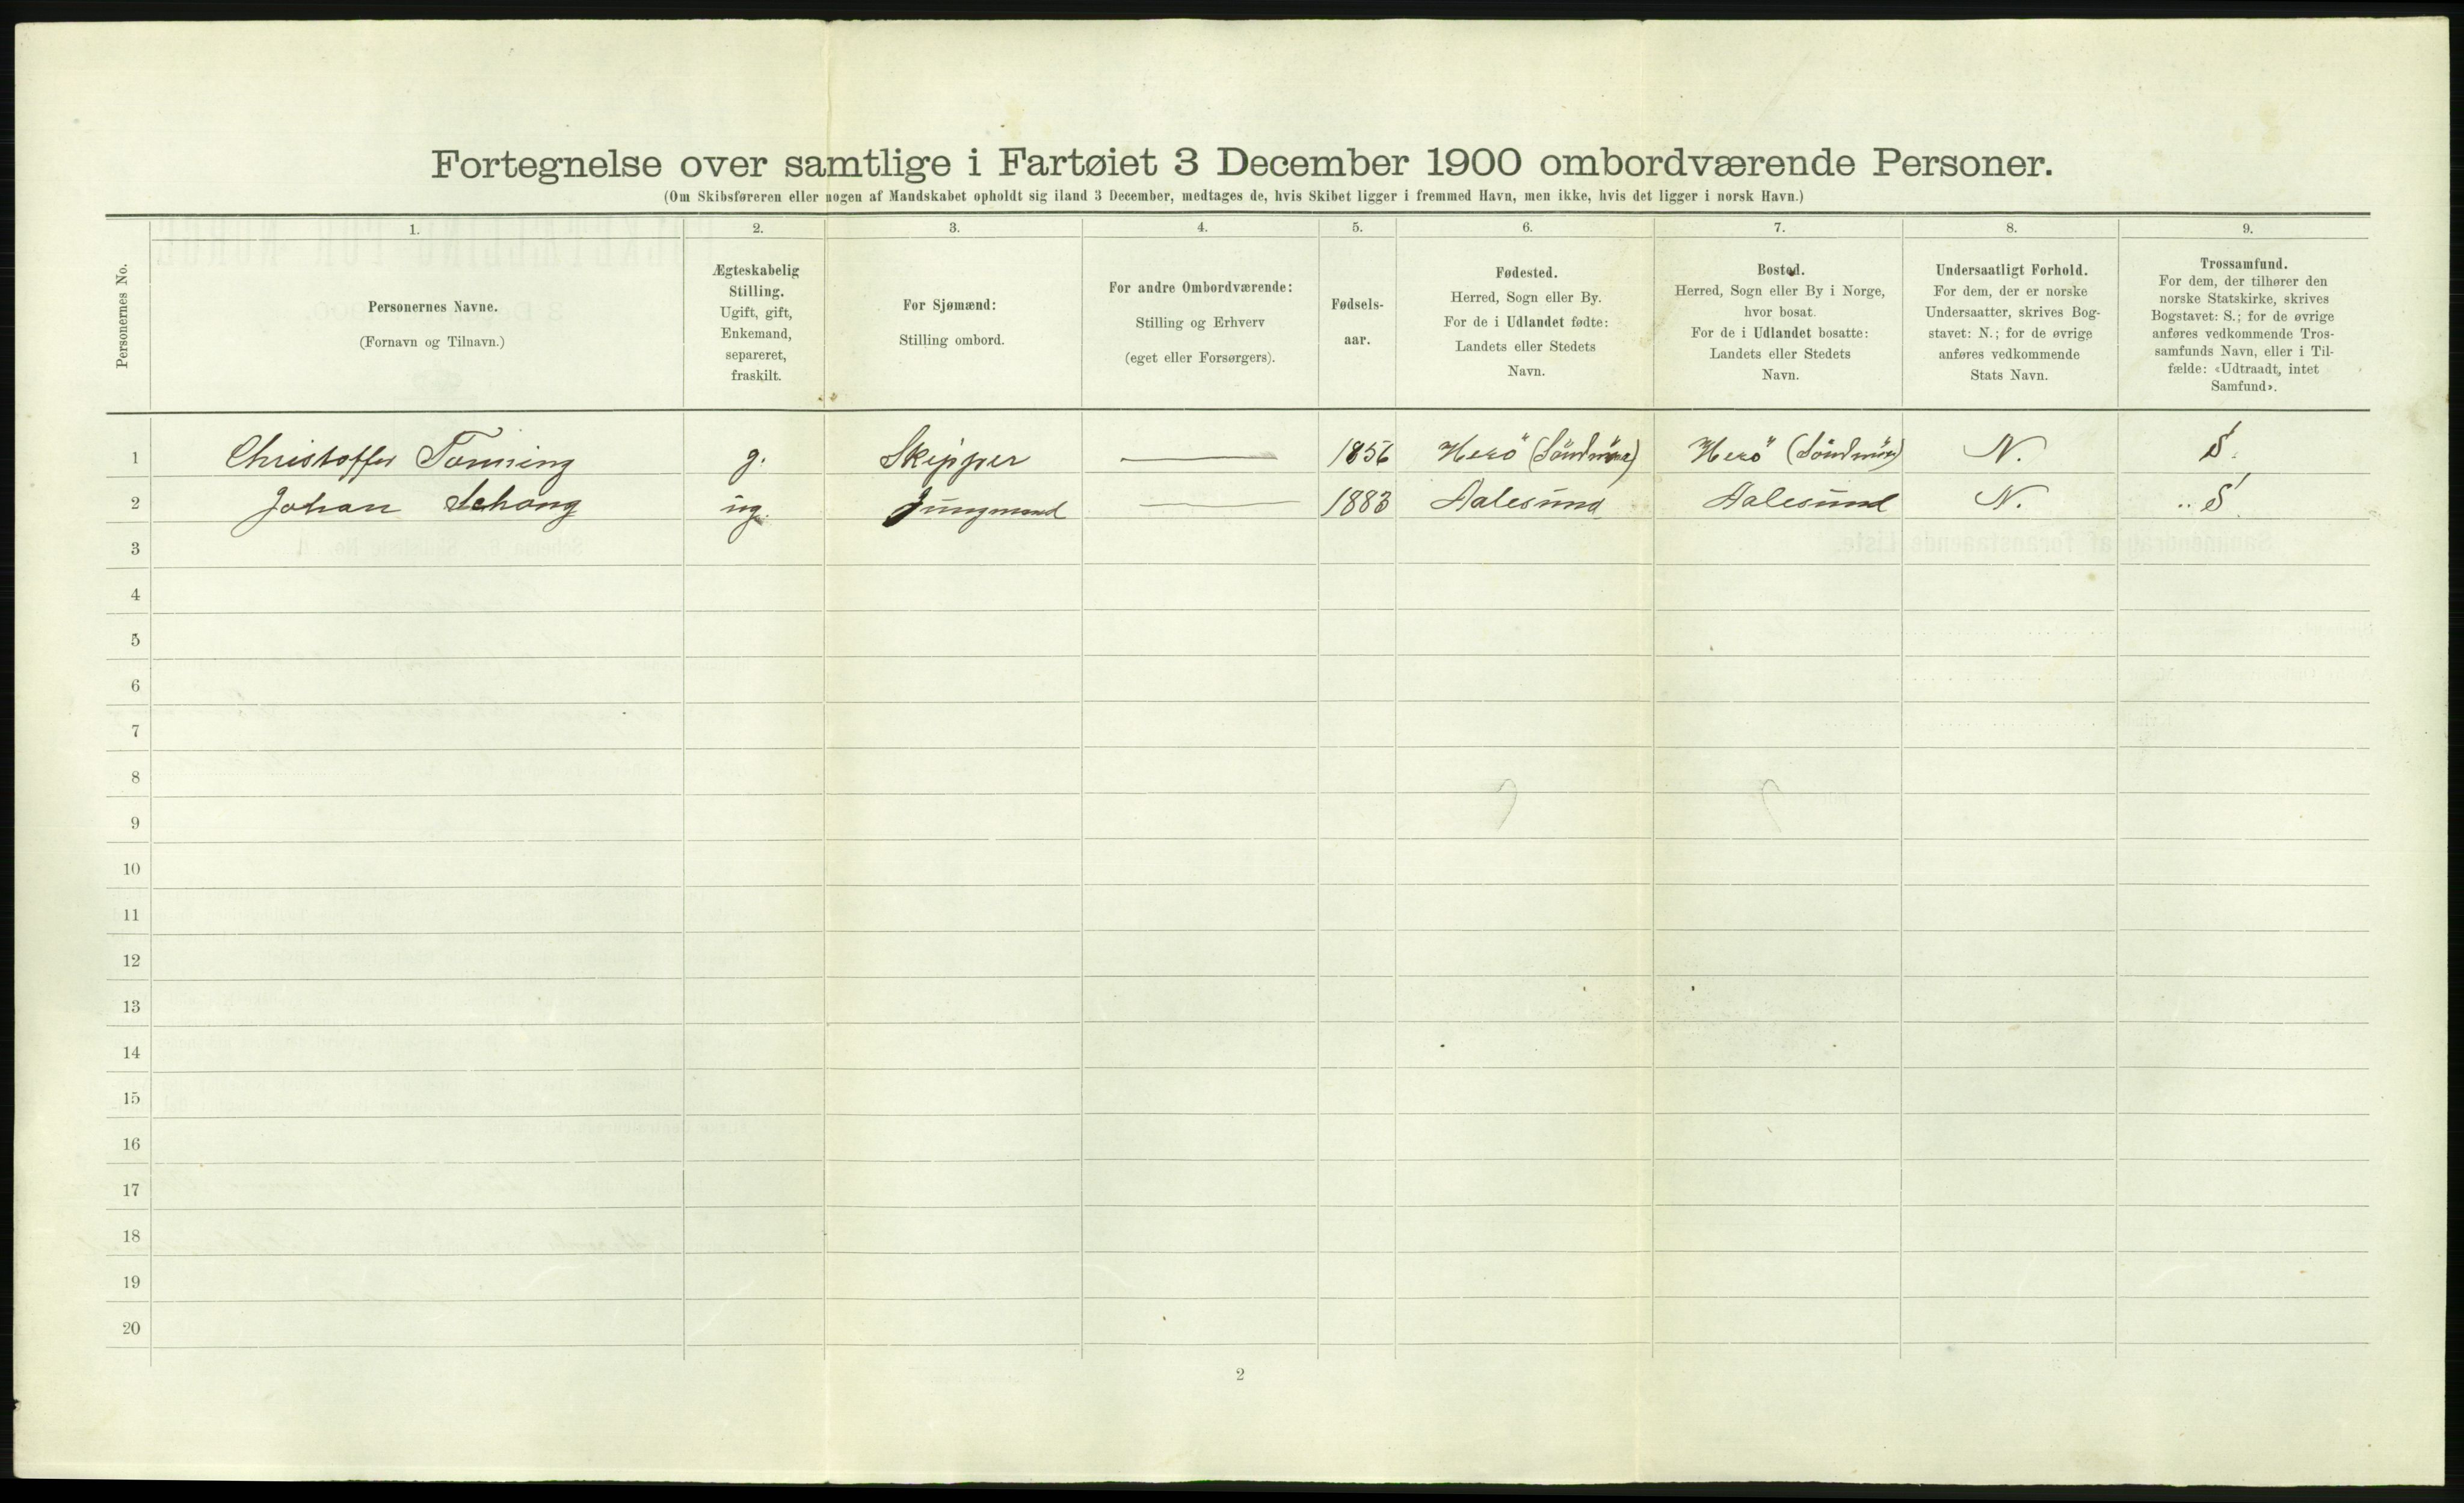 Fortegnelse over samtlige i Fartøiet 3 December 1900 ombordværende Personer.
(Om Skibsføreren eller nogen af Mandskabet opholdt sig iland 3 December, medtages de, hvis Skibet ligger i fremmed Havn, men ikke, hvis det ligger i norsk Havn.)
Personernes No.
1.
Personernes Navne.
(Fornavn og Tilnavn.)
2.
Ægteskabelig
Stilling.
Ugift, gift,
Enkemand,
separeret,
fraskilt.
3.
For Sjømænd:
Stilling ombord.
4.
For andre Ombordværende:
Stilling og Erhverv
(eget eller Forsørgers).
5.
Fødsels-
aar.
6.
Fødested.
Herred, Sogn eller By.
For de i Udlandet fødte:
Landets eller Stedets
Navn.
7.
Bosted.
Herred, Sogn eller By i Norge,
hvor bosat.
For de i Udlandet bosatte:
Landets eller Stedets
Navn.
8.
Undersaatligt Forhold.
For dem, der er norske
Undersaatter, skrives Bog-
stavet: N.; for de øvrige
anføres vedkommende
Stats Navn.
9.
Trossamfund.
For dem, der tilhører den
norske Statskirke, skrives
Bogstavet: S.; for de øvrige
anføres vedkommende Tros-
samfunds Navn, eller i Til-
fælde: «Udtraadt, intet
Samfund».
1 Christoffer Tonning g. Skipper 1856 Herö (Söndmöre) Herö (Söndmör) N. S.
2 Johan Schong ug. Jungmand 1883 Aalesund Aalesund N. S.
3
4
5
6
7
8
9
10
11
12
13
14
15
16
17
18
19
20
2